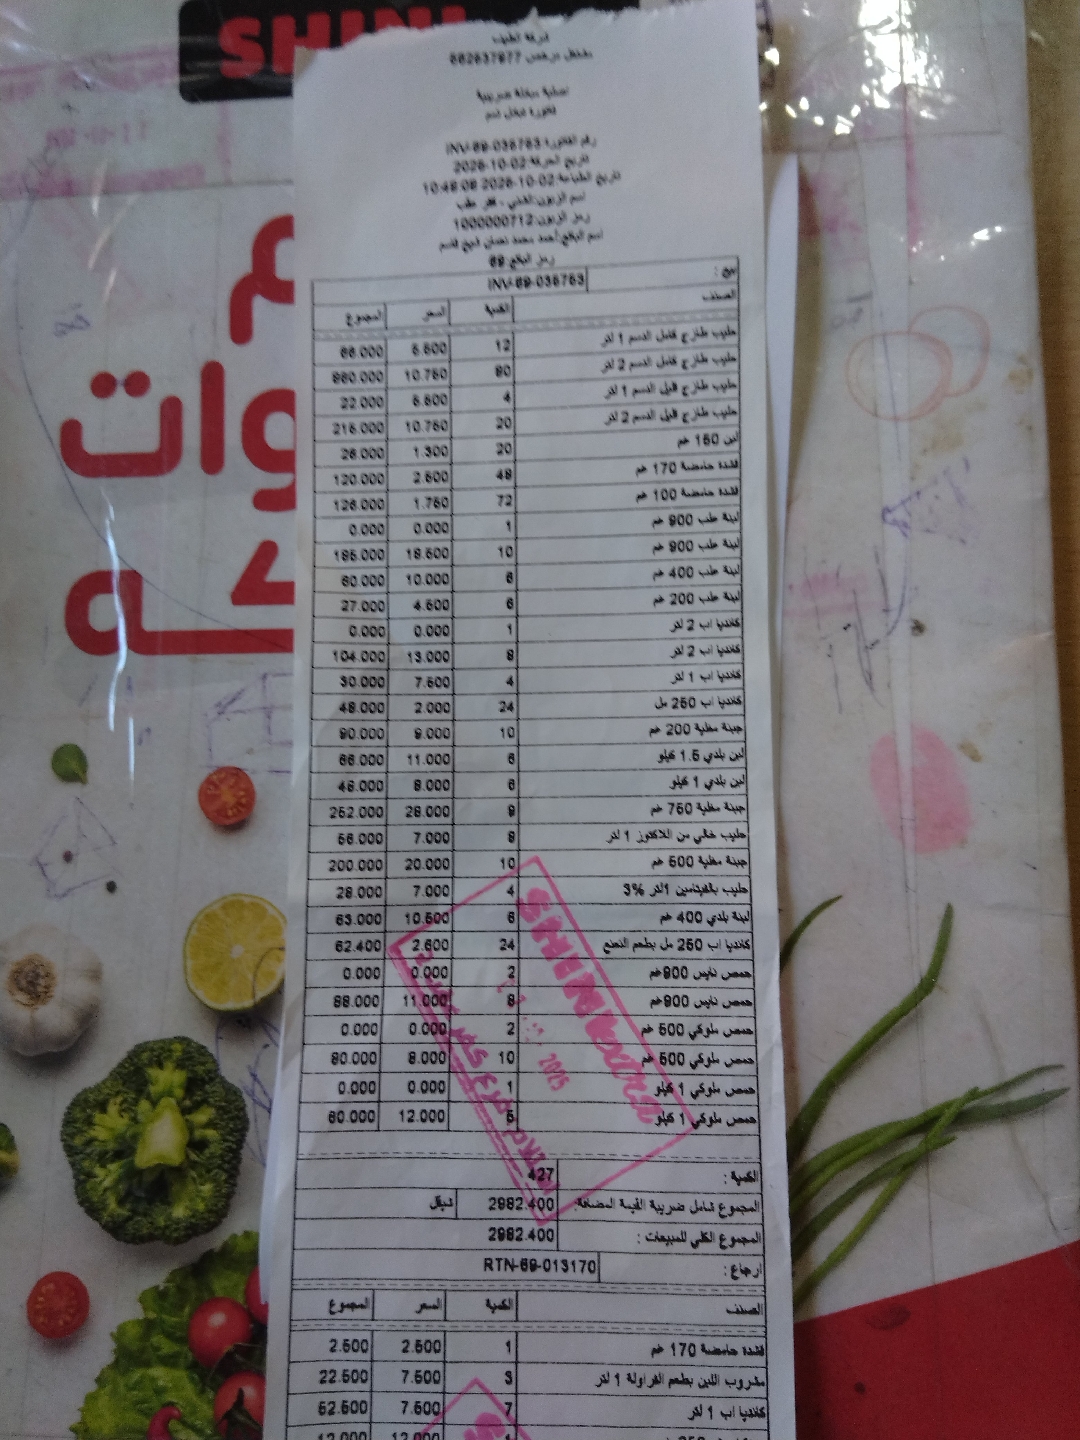 SHINI
م
وات
كه
شركة الطيب
مشتغل مرخص 562637977
تصفية مبدئة ضريبية
فاتورة
رقم الفاتورة:INV-69-036763
تاريخ الحركة:2025-10-02
تاريخ الطباعة:2025-10-02 10:48:08
اسم الزبون:الشني - كفر عقب
رمز الزبون:1000000712
اسم البائع:أحمد محمد نعمان الشيخ قاسم
رمز البائع:69
بيع : INV-69-036763
الصنف الكمية السعر المجموع
حليب طازج كامل الدسم 1 لتر 12 5.500 66.000
حليب طازج كامل الدسم 2 لتر 80 10.750 860.000
حليب طازج قليل الدسم 1 لتر 4 5.500 22.000
حليب طازج قليل الدسم 2 لتر 20 10.750 215.000
لبن 150 غم 20 1.300 26.000
قشدة حامضة 170 غم 48 2.500 120.000
قشدة حامضة 100 غم 72 1.750 126.000
لبنة علب 900 غم 1 0.000 0.000
لبنة علب 900 غم 10 19.500 195.000
لبنة علب 400 غم 6 10.000 60.000
لبنة علب 200 غم 6 4.500 27.000
كانديا اب 2 لتر 1 0.000 0.000
كانديا اب 2 لتر 8 13.000 104.000
كانديا اب 1 لتر 4 7.500 30.000
كانديا اب 250 مل 24 2.000 48.000
جبنة مغلية 200 غم 10 9.000 90.000
لبن بلدي 1.5 كيلو 6 11.000 66.000
لبن بلدي 1 كيلو 6 8.000 48.000
جبنة مغلية 750 غم 9 28.000 252.000
حليب خالي من اللاكتوز 1 لتر 8 7.000 56.000
جبنة مغلية 500 غم 10 20.000 200.000
حليب بالفيتامين 1لتر 3% 4 7.000 28.000
لبنة بلدي 400 غم 6 10.500 63.000
كانديا اب 250 مل بطعم النعنع 24 2.600 62.400
حمص نايس 900غم 2 0.000 0.000
حمص نايس 900غم 8 11.000 88.000
حمص ملوكي 500 غم 2 0.000 0.000
حمص ملوكي 500 غم 10 8.000 80.000
حمص ملوكي 1 كيلو 1 0.000 0.000
حمص ملوكي 1 كيلو 5 12.000 60.000
SHINI
2025
الكمية : 427
المجموع شامل ضريبة القيمة المضافة: 2982.400 شيقل
المجموع الكلي للمبيعات : 2982.400
ارجاع : RTN-69-013170
الصنف الكمية السعر المجموع
قشدة حامضة 170 غم 1 2.500 2.500
مشروب اللبن بطعم الفراولة 1 لتر 3 7.500 22.500
كانديا اب 1 لتر 7 7.500 52.500
12.000 12.000